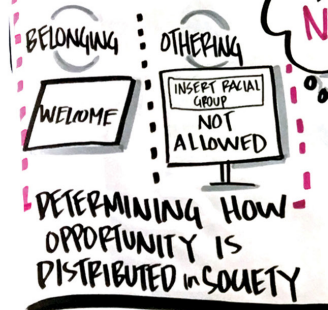 BELONGING
WELCOME
OTHERING
INSERT RACIAL
GROUP
NOT
ALLOWED
DETERMINING HOW
OPPORTUNITY IS
DISTRIBUTED in SOCIETY
N